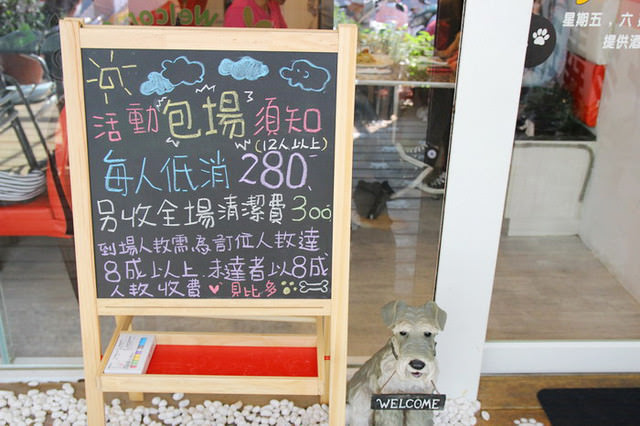 Welcome
活動包場須知
(12人以上)
每人低消280
另收全場清潔費300
到場人數需為訂位人數達
8成以上.未達者以8成
人數收費 ♥ 貝比多
WELCOME
星期五,六
提供酒